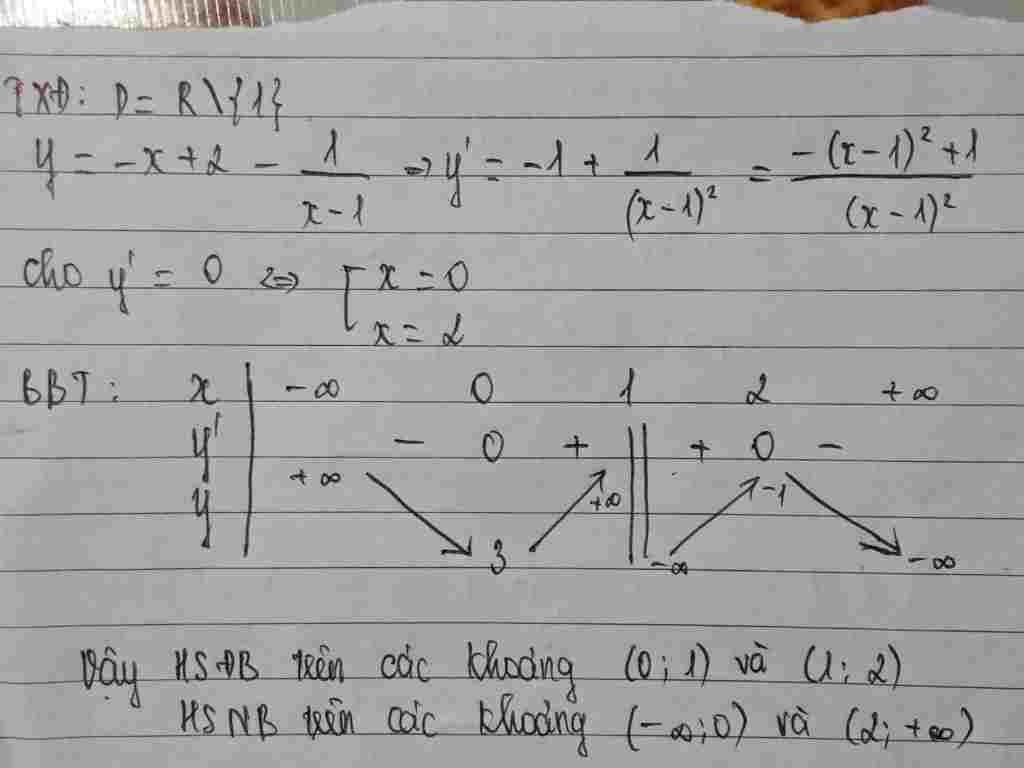 TXĐ: D = R \ {1}
y = -x + 2 - 1/(x-1) => y' = -1 + 1/(x-1)² = (-(x-1)² + 1)/(x-1)²
cho y' = 0 <=> [ x = 0
x = 2
BBT: x | -∞ 0 1 2 +∞
y' | - 0 + || + 0 -
y | +∞ ↘ 3 ↗ +∞ || -∞ ↗ -1 ↘ -∞
Vậy HSĐB trên các khoảng (0; 1) và (1; 2)
HSNB trên các khoảng (-∞; 0) và (2; +∞)